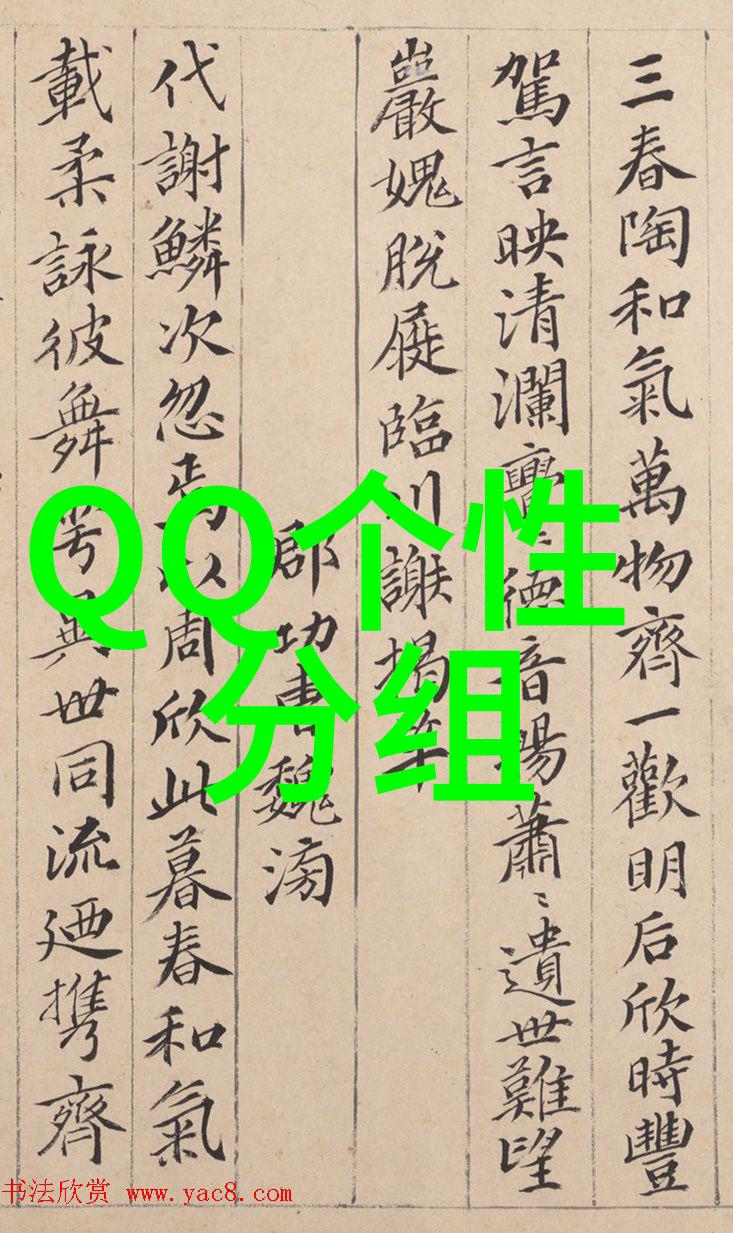 三春陶和氣萬物齊一歡明后欣時豐
駕言映清瀾亹〻德音暢蕭〻遺世難望
巖愧脫屣臨川謝揭竿
郡功曹魏滂
代謝鱗次忽焉以周欣此暮春和氣
載柔詠彼舞雩異世同流迺携齊
QQ个性
分组
书法欣赏 www.yac8.com